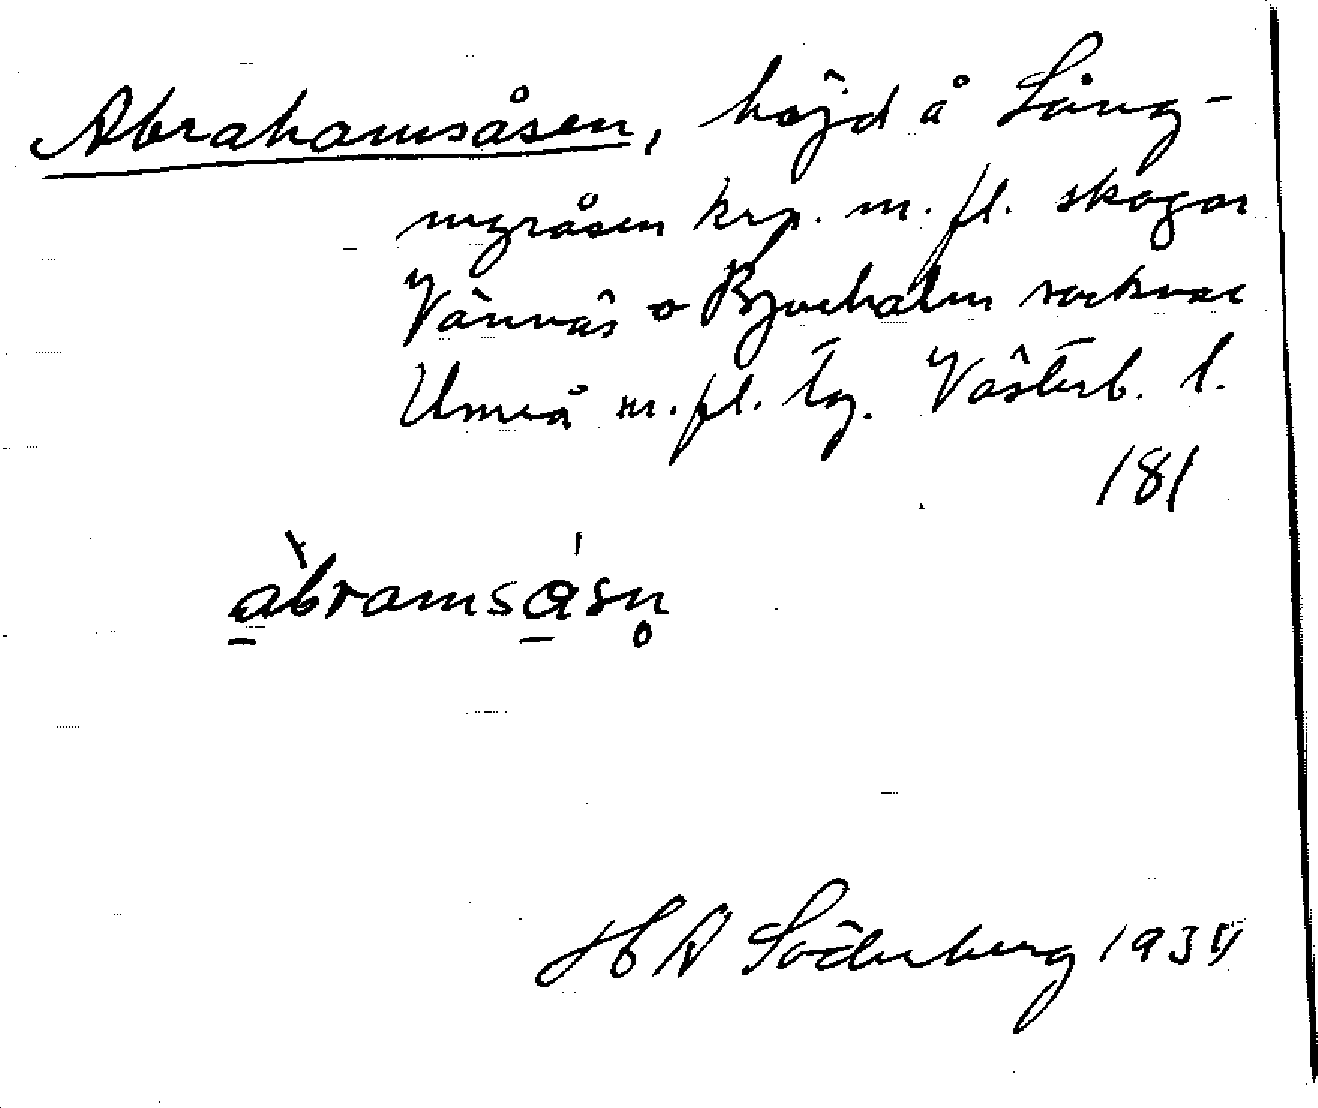 Abrahamsåsen, höjd å Lång-
myråsen krp. m. fl. skogar
Vännäs o Bjurholm socknar
Umeå m. fl. tg. Västerb. l.
181
àbramsásn̥
H A Söderberg